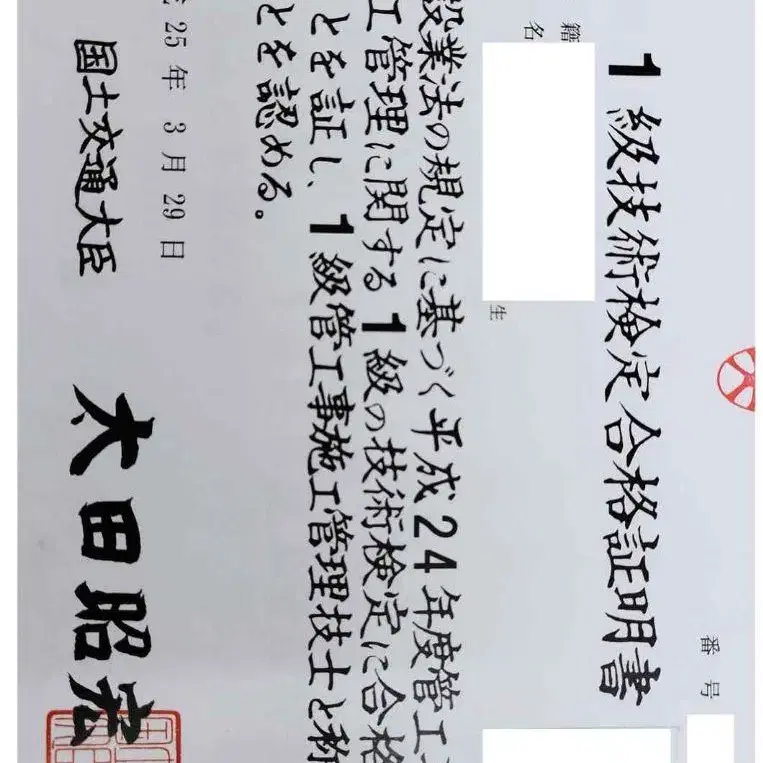 番号
1級技術検定合格証明書
籍
名
生
設業法の規定に基づく平成24年度管工
工管理に関する1級の技術検定に合格
とを証し、1級管工事施工管理技士と称
とを認める。
25年3月29日
国土交通大臣
太田昭宏